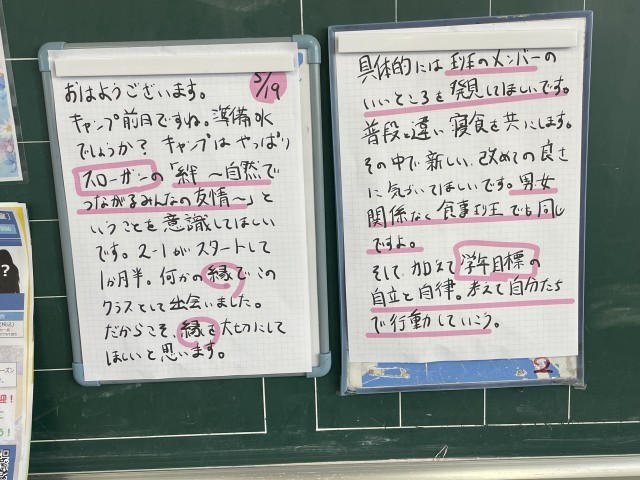 おはようございます。 5/19
キャンプ前日ですね。準備OK
でしょうか？ キャンプはやっぱり
スローガンの「絆 〜自然で
つながるみんなの友情〜」と
いうことを意識してほしい
です。2-1がスタートして
1か月半。何かの縁でこの
クラスとして出会いました。
だからこそ、縁を大切にして
ほしいと思います。
具体的には班のメンバーの
いいところを発見してほしいです。
普段と違い寝食を共にします。
その中で新しい、改めての良さ
に気づいてほしいです。男女
関係なく食事班でも同じ
ですよ。
そして、加えて学年目標の
自立と自律。考えて自分たち
で行動していこう。
2